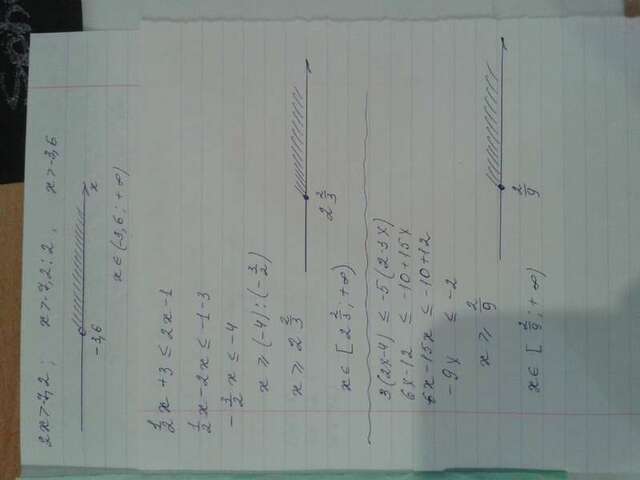 2x>-7,2; x>-7,2:2, x>-3,6
-3,6 x
x∈(-3,6; +∞)
1/2 x + 3 ≤ 2x - 1
1/2 x - 2x ≤ -1 - 3
- 3/2 x ≤ -4
x ≥ (-4) : (- 3/2)
x ≥ 2 2/3
2 2/3
x∈[2 2/3; +∞)
3(2x-4) ≤ -5(2-3x)
6x-12 ≤ -10+15x
6x-15x ≤ -10+12
-9x ≤ -2
x ≥ 2/9
2/9
x∈[2/9; +∞)